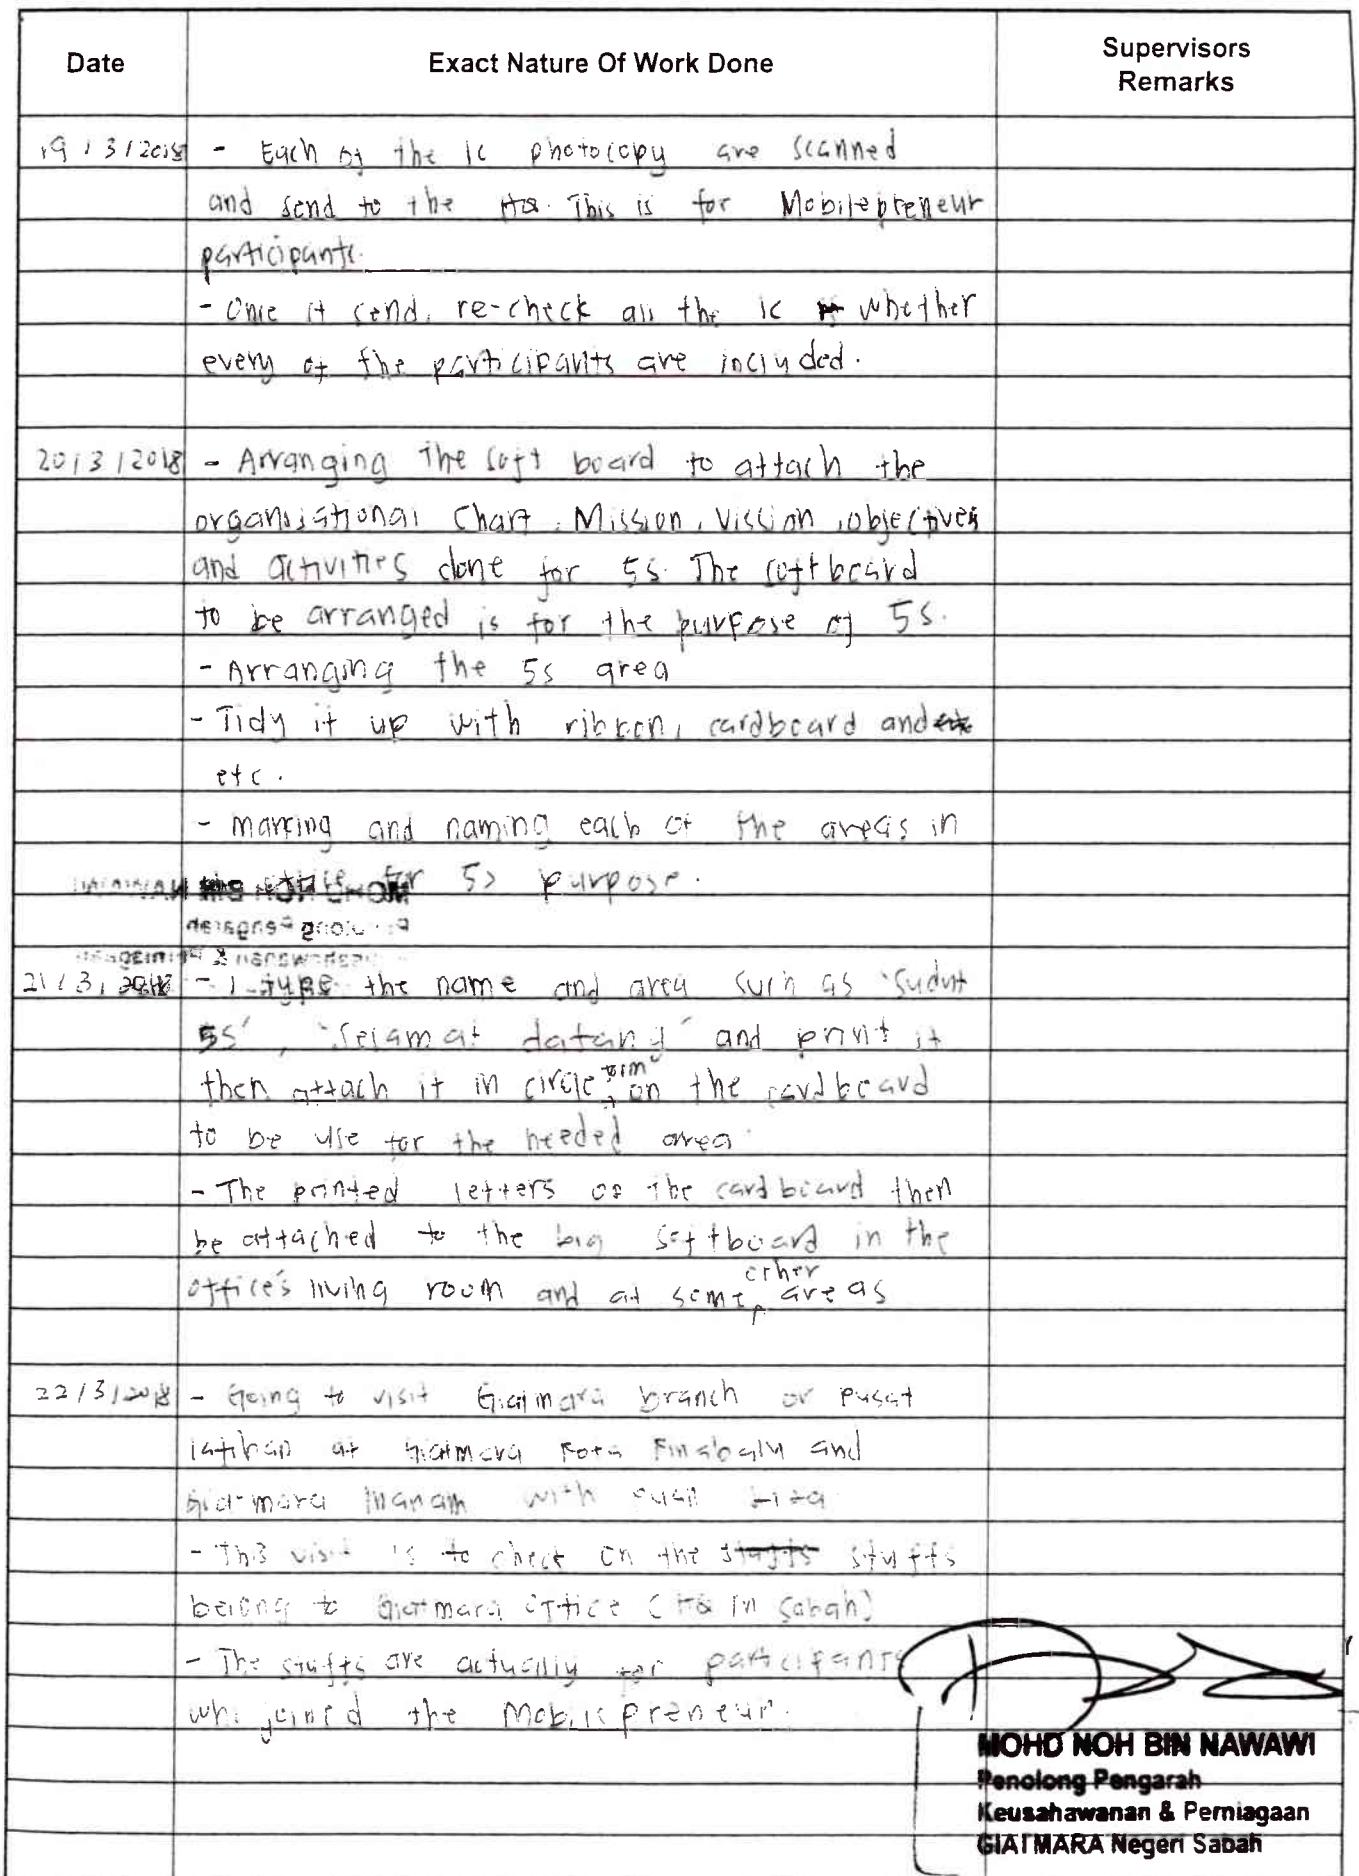 Date Exact Nature Of Work Done Supervisors Remarks
19/3/2018 - Each of the ic photocopy are scanned
and send to the HQ. This is for Mobilepreneur
participants.
- Once it send, re-check all the ic whether
every of the participants are included.
20/3/2018 - Arranging the soft board to attach the
organisational Chart, Mission, Vission, objectives
and activities done for 5s. The softboard
to be arranged is for the purpose of 5s.
- Arranging the 5s area
- Tidy it up with ribbon, cardboard and
etc.
- marking and naming each of the areas in
the office for 5s purpose.
21/3/2018 - I type the name and area such as 'Sudut
5S', 'Selamat datang' and print it
then attach it in circle form on the cardboard
to be use for the needed area.
- The printed letters of the cardboard then
be attached to the big softboard in the
office's living room and at some other areas
22/3/2018 - Going to visit Giatmara branch or pusat
latihan at Giatmara Kota Kinabalu and
Giatmara Inanam with Puan
- This visit is to check on the stuffs stuffs
belong to Giatmara Office (HQ in Sabah)
- The stuffs are actually for participants
who joined the Mobilepreneur.
MOHD NOH BIN NAWAWI
Penolong Pengarah
Keusahawanan & Perniagaan
GIATMARA Negeri Sabah